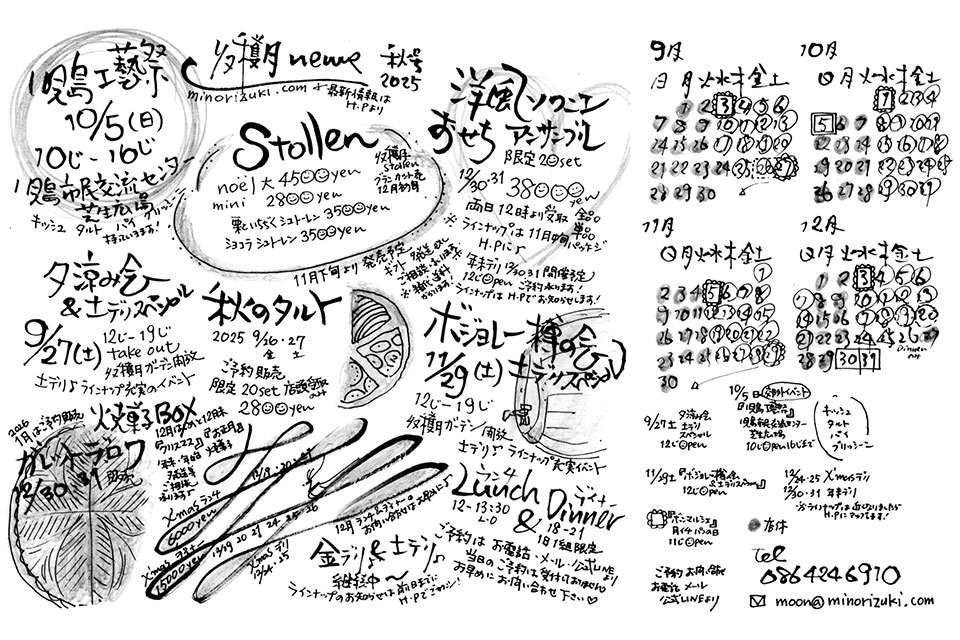 児島工藝祭
10/5(日)
10じ-16じ
児島市民交流センター
芝生広場
キッシュ パイ
タルト
持っていきます!
穫月 newe 秋号
2025
minorizuki.com
最新情報は
H.Pより
Stollen
noël 大 4500yen
mini 2800yen
栗といちじくシュトーレン 3500yen
ショコラシュトーレン 3500yen
12月初旬
11月下旬より 発売予定
洋風
おせち アンサンブル
限定 20set
12/30・31
38000yen
両日 12時より受取
※ラインナップは 11月中旬
H.Pに♪
年末デリ 12/30・31 開催予定
12じOpen ご予約承ります!
ラインナップは H.Pでお知らせします!
夕涼み会
&土デリスペシャル
9/27(土)
12じ-19じ
take out
穫月ガーデン開放
土デリ♪ラインナップ充実のイベント
秋のタルト
2025 9/26・27
金 土
ご予約販売
限定 20set 店頭受取
2800yen
ボジョレー樽の会
11/29(土) 土デリスペシャル
12じ-19じ
穫月ガーデン開放
土デリ♪ ラインナップ充実イベント
2026
1月はご予約販売
ガレットデロワ
12/30 31 販売
焼菓子BOX
12月はじめと12月末
『クリスマス』『お正月』
年末・年始 焼菓子
Xmasランチ
6000yen
12/19 20 21 24 25 26
15000yen
12/19 20 21 24 25 26
Xmasデリ
12/24・25
金デリ&土デリ♪
継続中〜
ラインナップのお知らせは前日までに
ランチ
Lunch
12-13:30
L・O
&
ディナー
Dinner
18-21
1日1組限定
ご予約は お電話・メール・公式LINEより
当日のご予約は受付ておりません
お早めにお問い合わせ下さい♡
9月
日月火水木金土
1 2 3 4 5 6
7 8 9 10 11 12 13
14 15 16 17 18 19 20
21 22 23 24 25 26 27
28 29 30
10月
日月火水木金土
1 2 3 4
5 6 7 8 9 10 11
12 13 14 15 16 17 18
19 20 21 22 23 24 25
26 27 28 29 30 31
11月
日月火水木金土
1
2 3 4 5 6 7 8
9 10 11 12 13 14 15
16 17 18 19 20 21 22
23 24 25 26 27 28 29
30
12月
日月火水木金土
1 2 3 4 5 6
7 8 9 10 11 12 13
14 15 16 17 18 19 20
21 22 23 24 25 26 27
28 29 30 31
Dinner
9/27土 夕涼み会
土デリ
スペシャル
12じOpen
10/5日
『児島工藝祭』
児島市民交流センター
芝生広場
10じOpen 16じまで
キッシュ
タルト
パイ
11/29土『ボジョレー樽の会
&土デリスペシャル』
12じOpen
12/24・25 X'masデリ
12/30・31 年末デリ
『ボンマルシェ』
月イチパンの日
11じOpen
店休
ご予約 お問い合せ
お電話 メール
公式LINEより
Tel
0864246910
moon@minorizuki.com